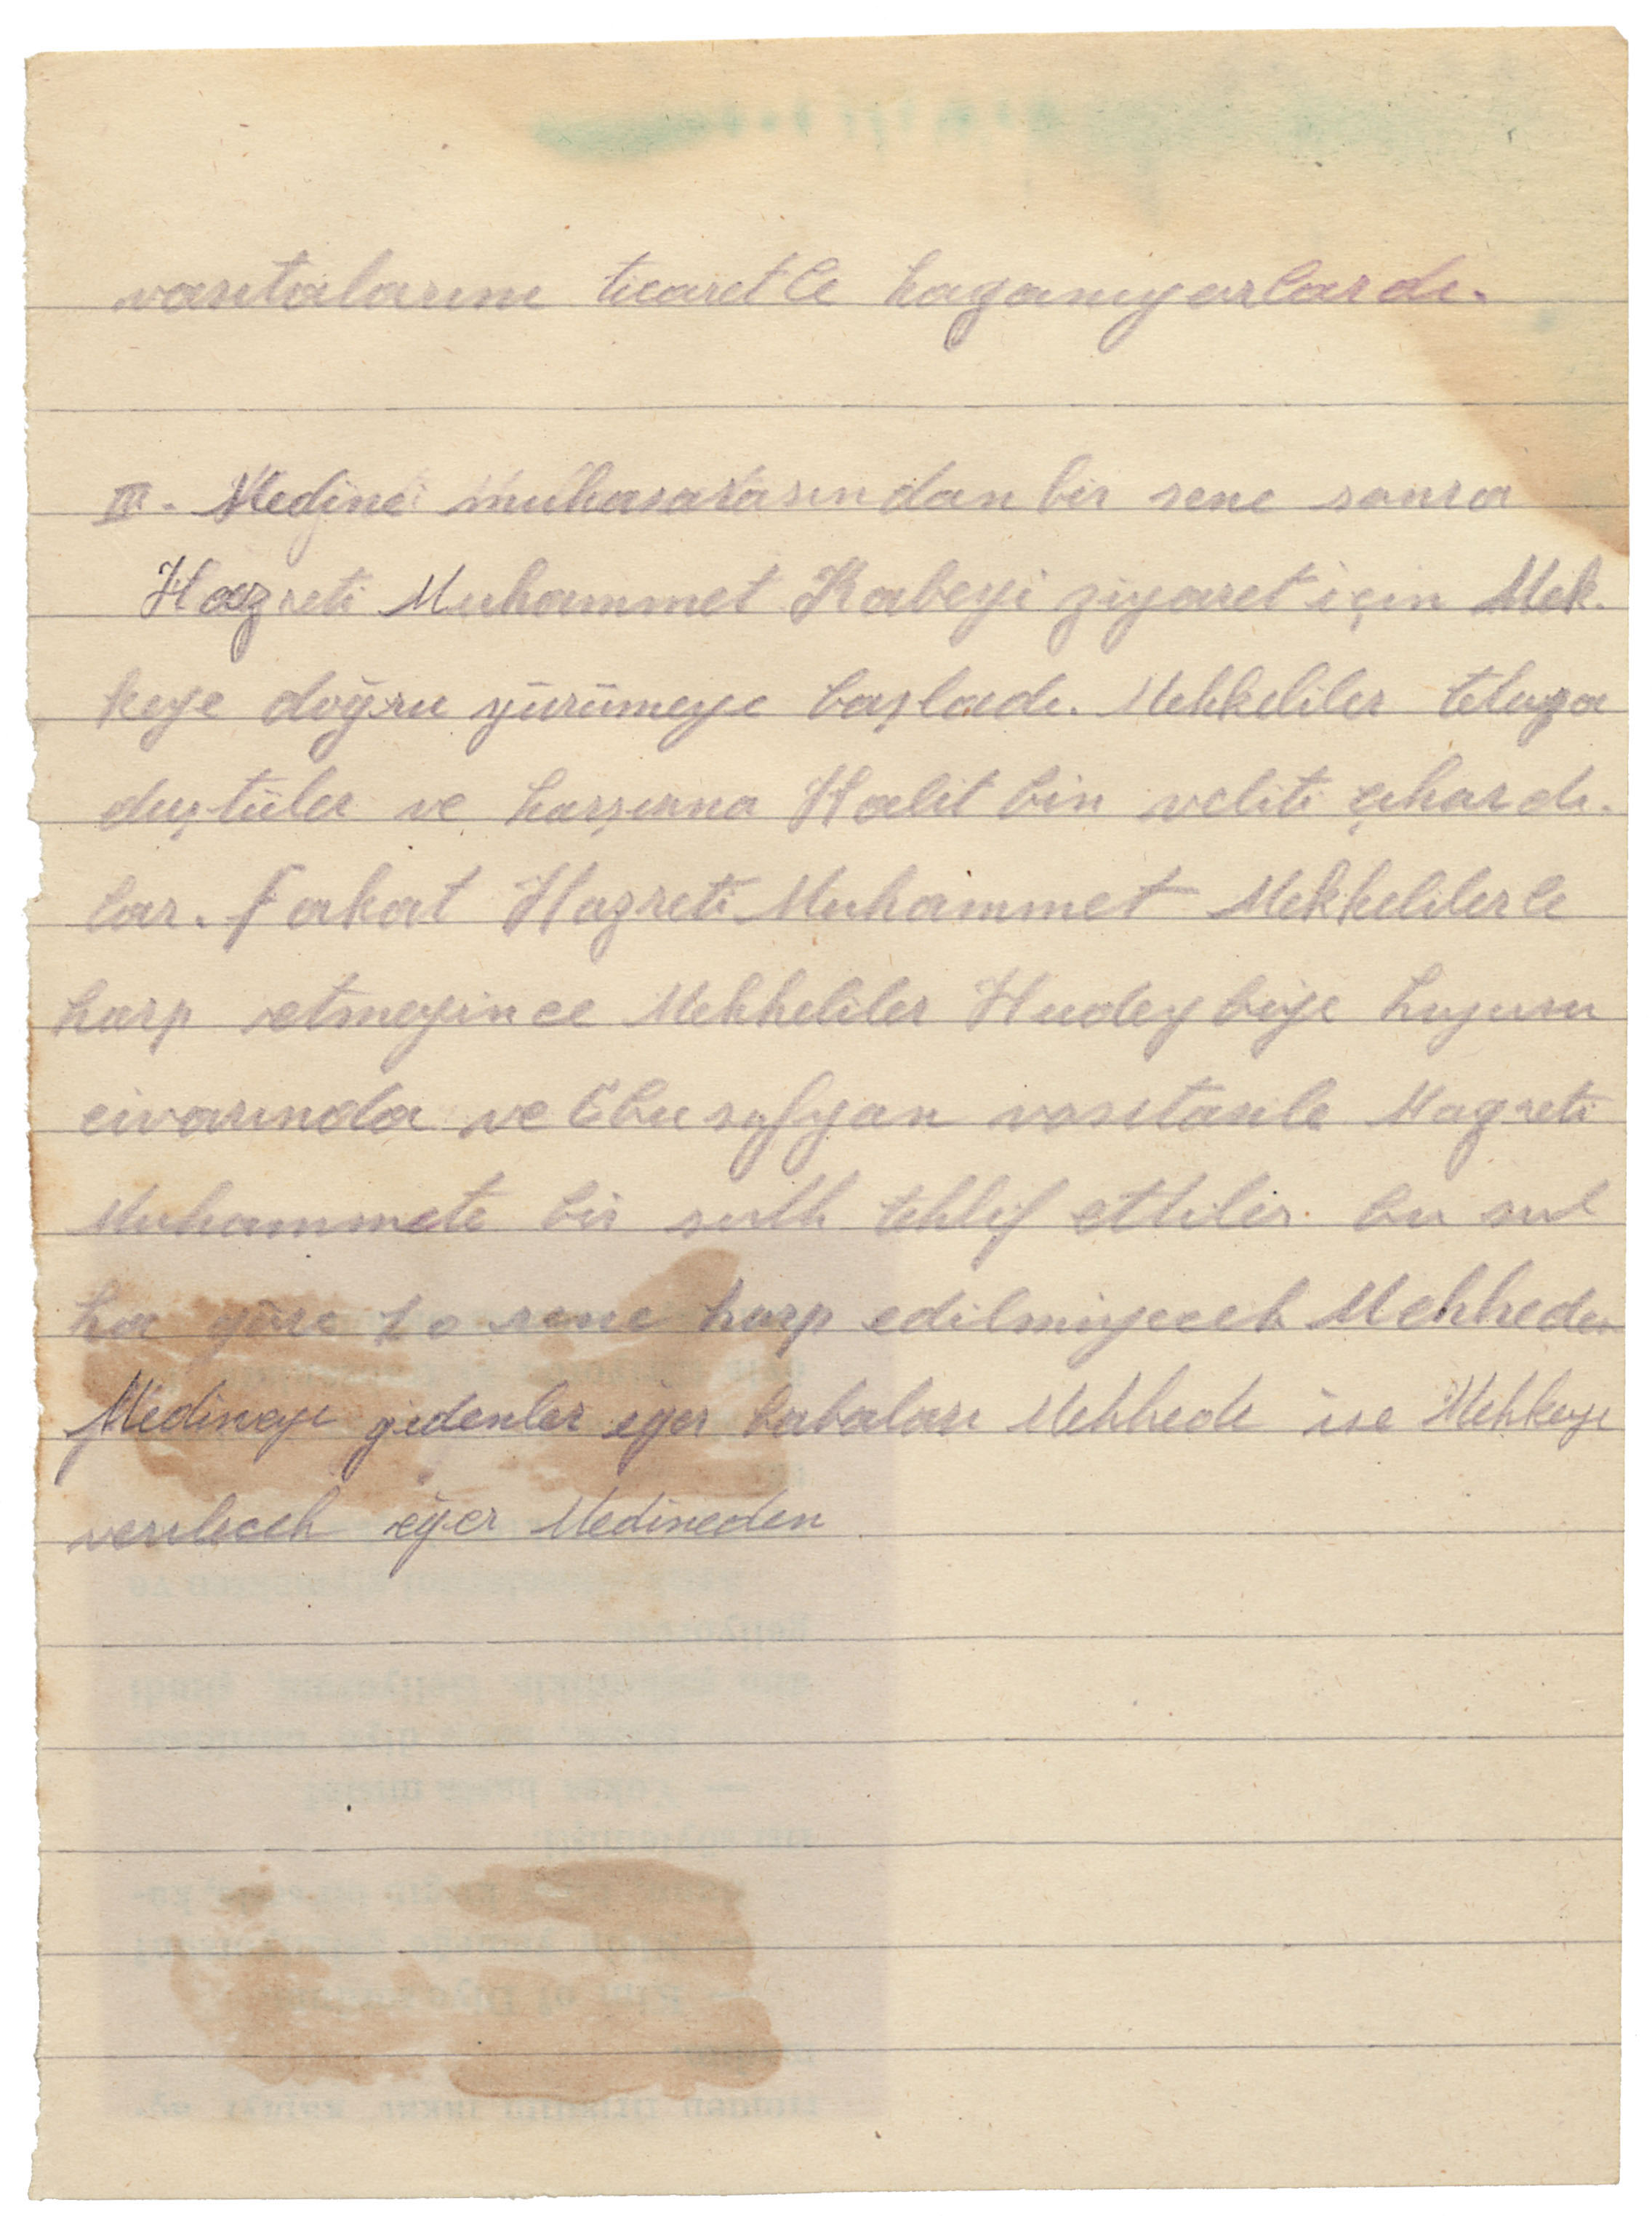 vasıtalarını ticaretle kazanıyorlardı.
III. Medine muhasarasından bir sene sonra
Hazreti Muhammet Kabeyi ziyaret için Mek-
keye doğru yürümeye başladı. Mekkeliler telaşa
düştüler ve karşısına Halit bin veliti çıkardı-
lar. Fakat Hazreti Muhammet Mekkelilerle
harp etmeyince Mekkeliler Hudeybiye kuyusu
civarında ve Ebu sufyan vasıtasile Hazreti
Muhammete bir sulh teklif ettiler. bu sul
ha göre 10 sene harp edilmiyecek Mekkeden
Medineye gidenler eğer babaları Mekkede ise Mekkeye
verilecek eğer Medineden